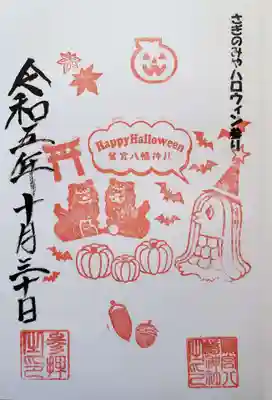 さぎのみやハロウィン祭り
HappyHalloween
鷺宮八幡神社
令和五年十月三十日